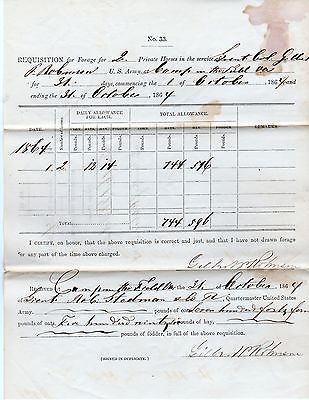 No. 33.
REQUISITION for Forage for 2 Private Horses in the service Lieut Col Gilbert
P. Robinson U. S. Army, Camp in the field
for 31 days, commencing the 1 of October 1864 and
ending the 31 of October, 1864
DAILY ALLOWANCE FOR EACH. TOTAL ALLOWANCE.
DATE. REMARKS
Pounds. Pounds. Pounds. Pounds. Pounds. Pounds.
1864
1 2 12 14 744 596
Total: 744 596
I CERTIFY, on honor, that the above requisition is correct and just, and that I have not drawn forage
for any part of the time above charged.
Received Camp in the Field 31 October 1864 of
Lieut. Stedman Quartermaster United States
Army, seven hundred forty four
pounds of oats, Five hundred ninety six pounds of hay,
pounds of fodder, in full of the above requisition.
(SIGNED IN DUPLICATE.)